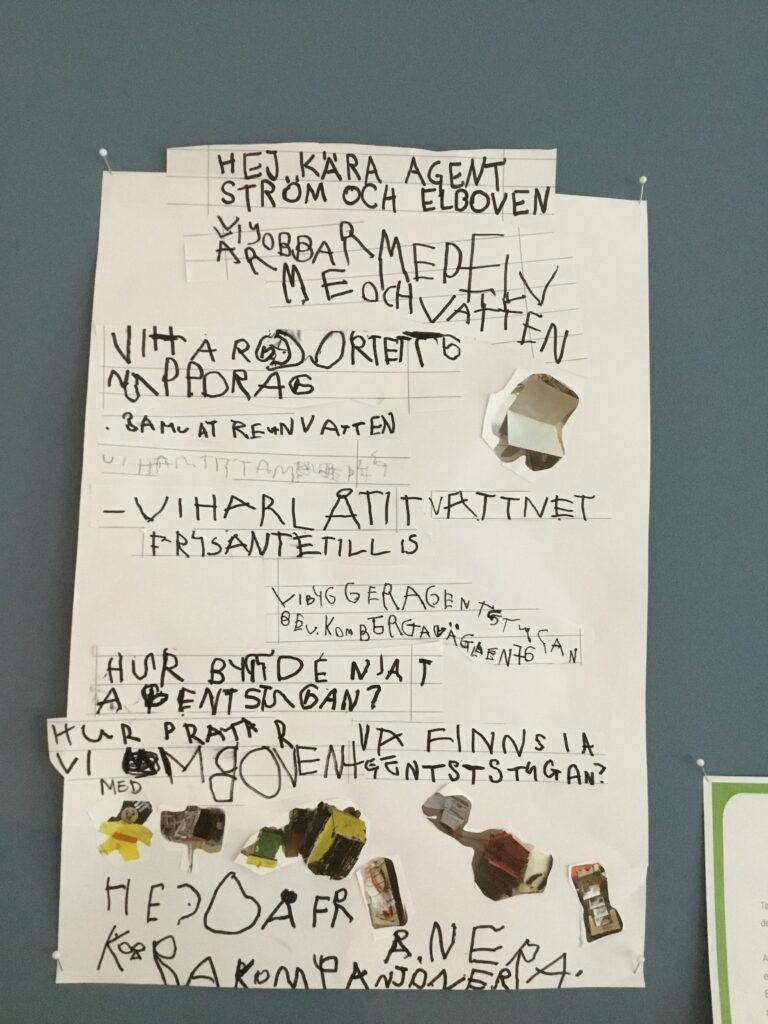 HEJ KÄRA AGENT
STRÖM OCH ELBOVEN
VI JOBBAR MED ELV
ÄR ME OCH VATTEN
VI HAR JORT ETT
UPPDRAG
. SAMLAT REGNVATTEN
- VI HAR LÅTIT VATTNET
FRYSA NTE TILL IS
VI BYGGER AGENTSTUGAN
BERGAVÄGAEN 76
HUR BYGDE NI AT
AGENTSTUGAN?
HUR PRATAR
VI MED BOVEN
VA FINNS I A
GENTSTSTUGAN?
HEJ DÅ FR
KÄRA KOMPANJONER